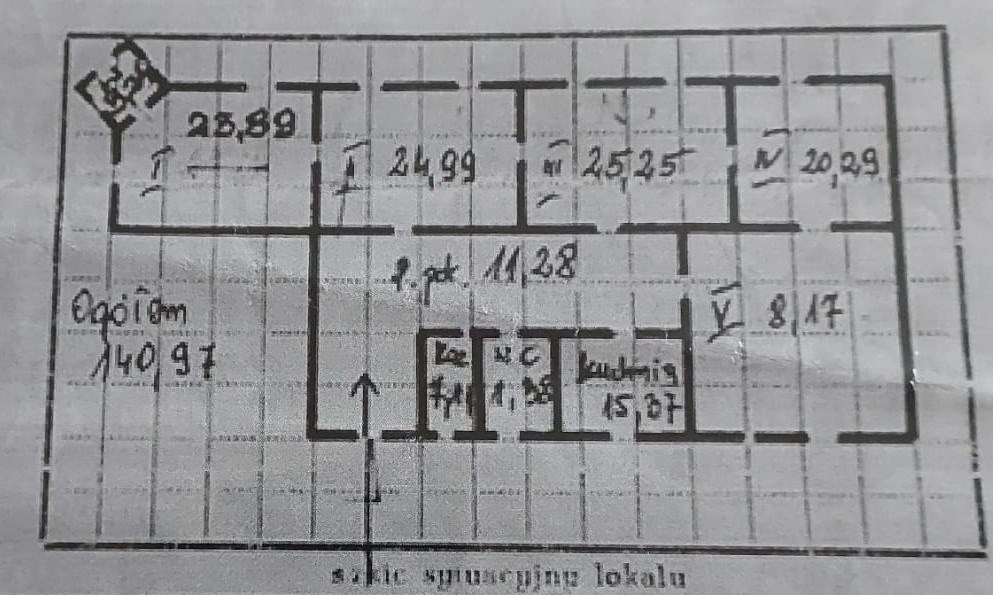 23,89
I
II 24,99
III 25,25
IV 20,29
p. pok. 11,28
Ogółem
140,97
V 8,17
Łaz
7,11
WC
1,38
kuchnia
15,37
szkic sytuacyjny lokalu